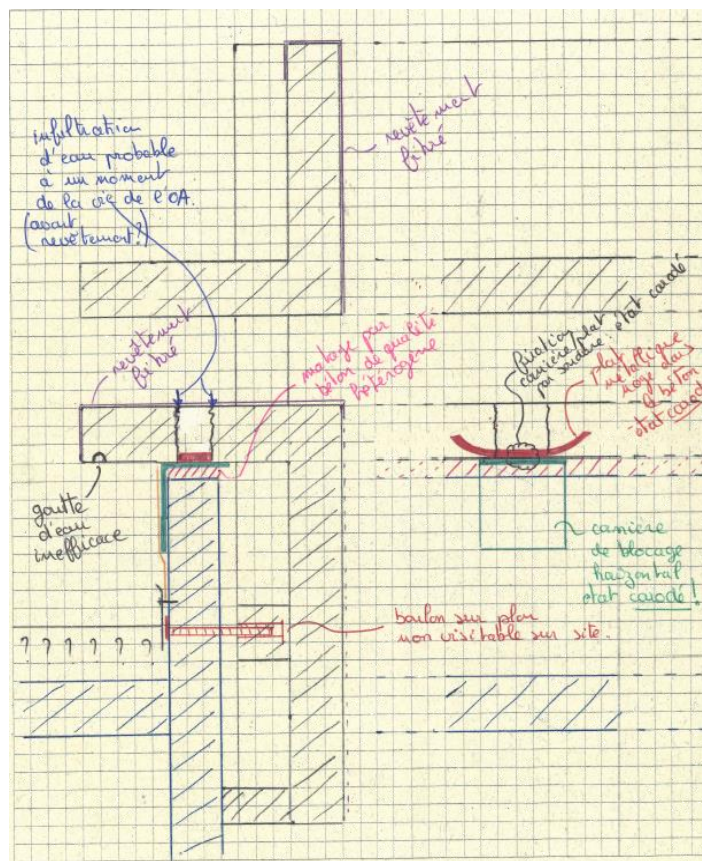 infiltration
d'eau probable
à un moment
de la vie de l'OA.
(avant
revêtement?)
revêtement
filmé
revêtement
filmé
matage par
béton de qualité
hétérogène
fixation
cornière/plat
par soudure: état corrodé
plat
métallique
noyé dans
le béton
état corrodé
goutte
d'eau
inefficace
cornière
de blocage
horizontal
état corrodé!
boulon sur plan
non visitable sur site.
? ? ? ? ?